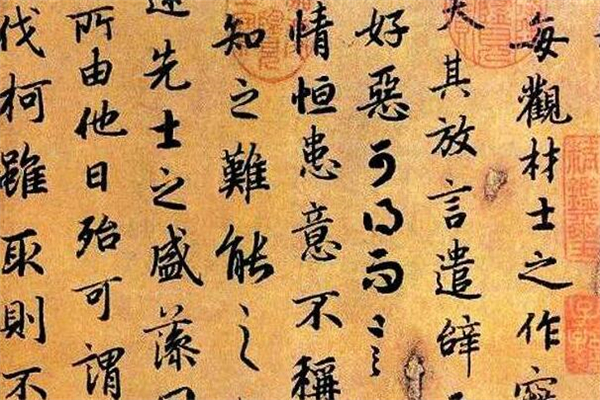 每觀材士之作竊
夫其放言遣辭
好惡可得而言
情恒患意不稱
知之難能之
述先士之盛藻
所由他日殆可謂
伐柯雖取則不